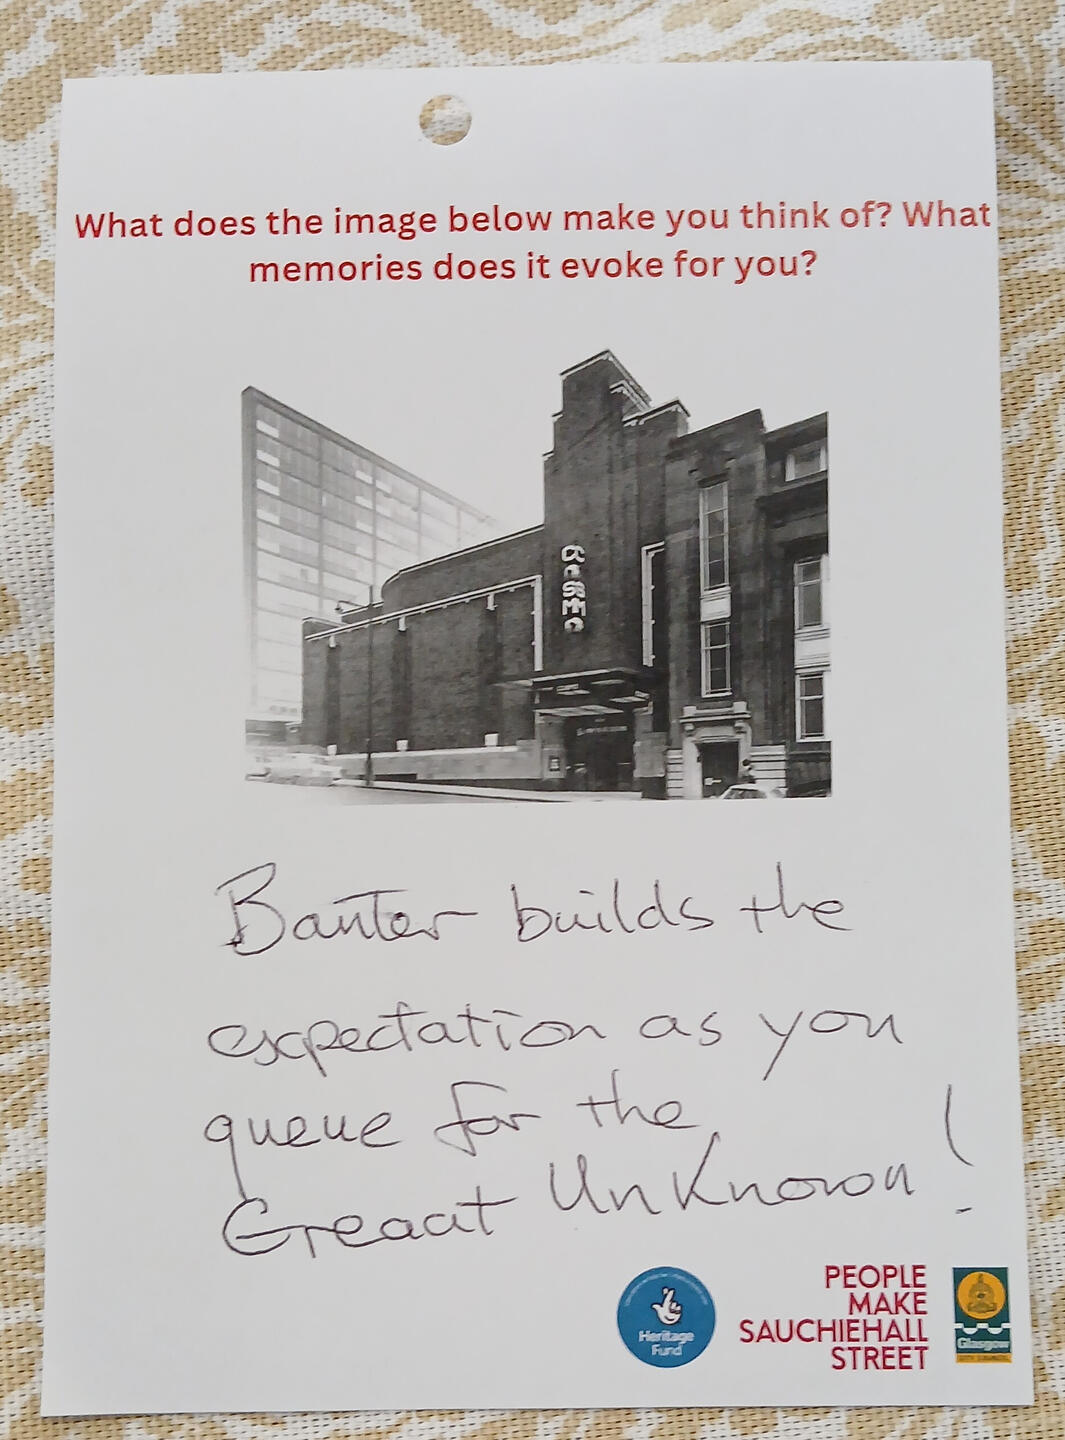 What does the image below make you think of? What
memories does it evoke for you?
COSMO
Banter builds the
expectation as you
queue for the
Greaat UnKnown!
Heritage
Fund
PEOPLE
MAKE
SAUCHIEHALL
STREET
Glasgow
CITY COUNCIL